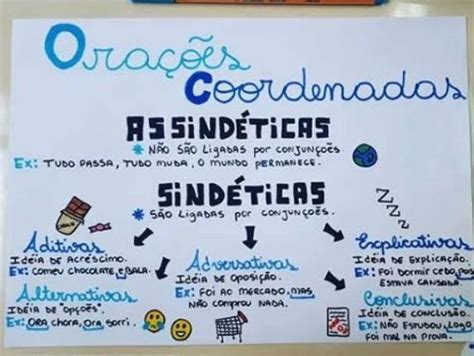 Orações
Coordenadas
ASSINDÉTICAS
* NÃO SÃO LIGADAS POR CONJUNÇÕES.
Ex: TUDO PASSA, TUDO MUDA, O MUNDO PERMANECE.
SINDÉTICAS
* SÃO LIGADAS POR CONJUNÇÕES.
Aditivas
IDÉIA DE ACRÉSCIMO.
Ex: COMEU CHOCOLATE, E BALA.
Adversativas
IDÉIA DE OPOSIÇÃO.
Ex: FOI AO MERCADO, MAS
NÃO COMPROU NADA.
Explicativas
IDÉIA DE EXPLICAÇÃO.
Ex: FOI DORMIR CEDO, POIS
ESTAVA CANSADA.
Alternativas
IDEIA DE "OPÇÕES".
Ex: ORA CHORA, ORA SORRI.
Conclusivas
IDÉIA DE CONCLUSÃO.
Ex: NÃO ESTUDOU, LOGO
FOI MAL NA PROVA.
ZZZZ